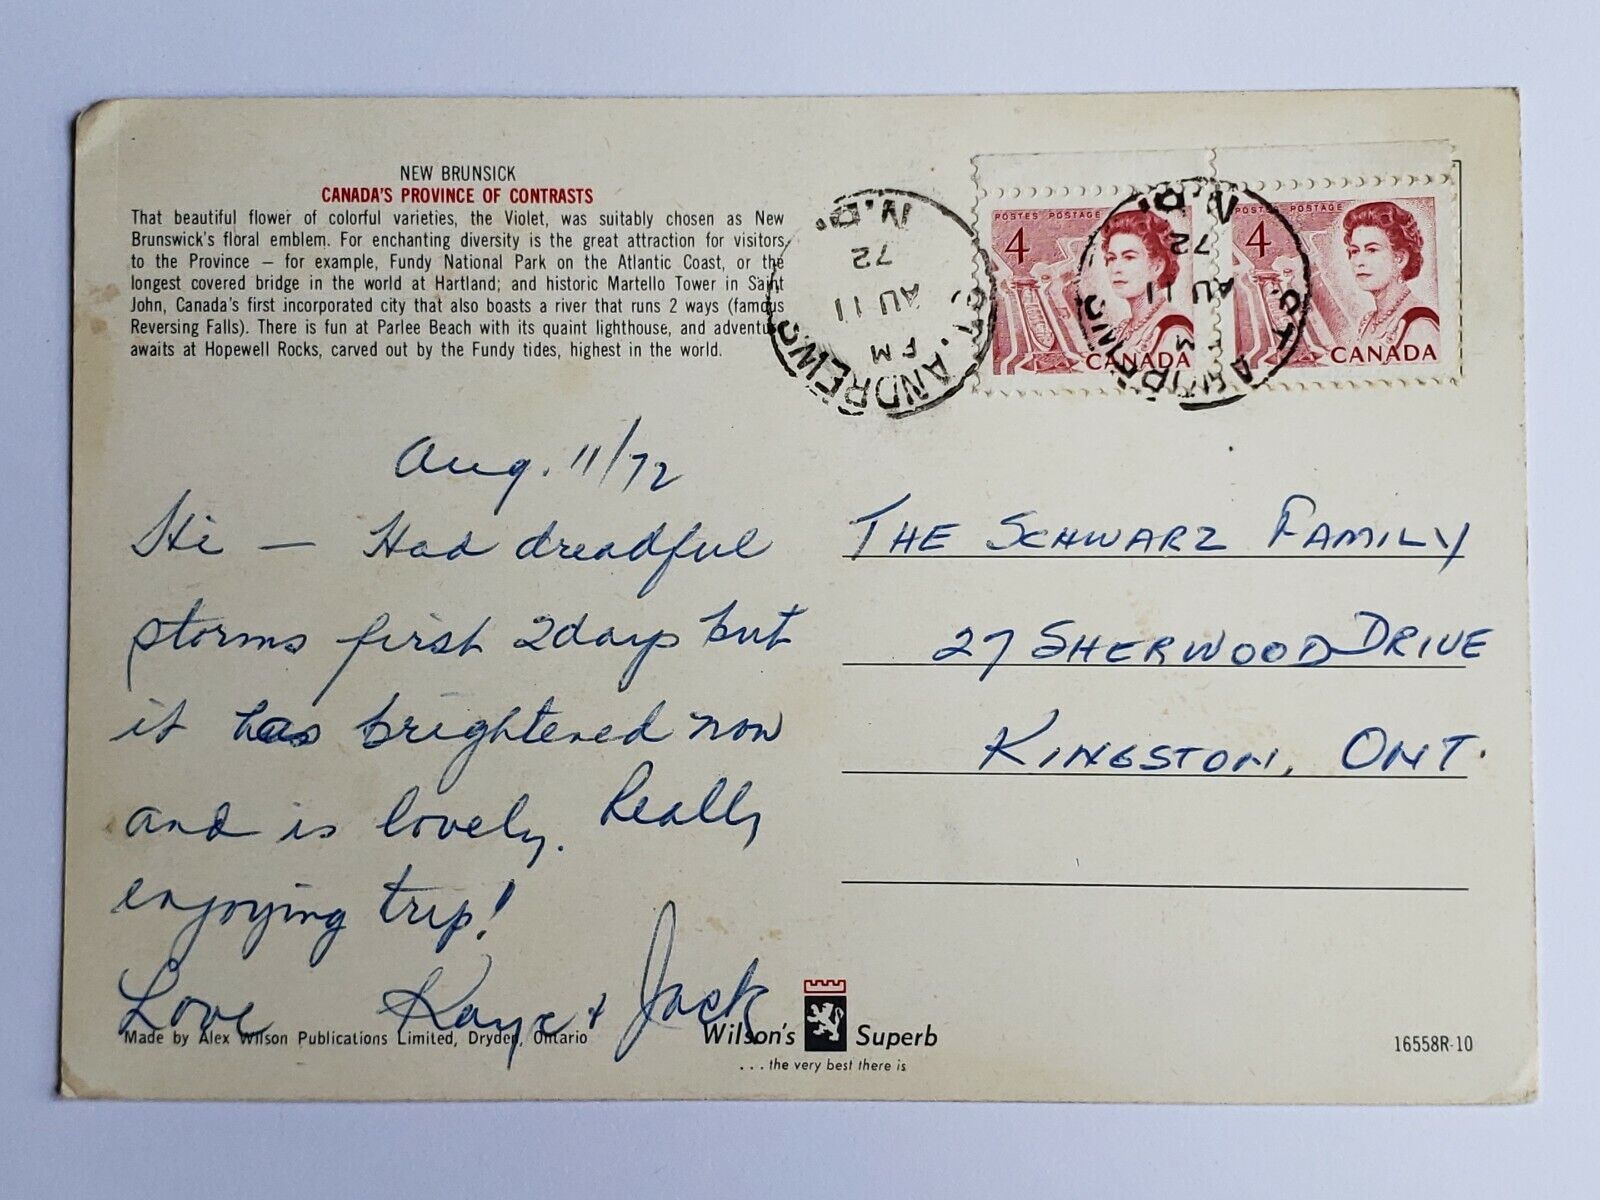 NEW BRUNSICK
CANADA'S PROVINCE OF CONTRASTS
That beautiful flower of colorful varieties, the Violet, was suitably chosen as New
Brunswick's floral emblem. For enchanting diversity is the great attraction for visitors
to the Province – for example, Fundy National Park on the Atlantic Coast, or the
longest covered bridge in the world at Hartland; and historic Martello Tower in Saint
John, Canada's first incorporated city that also boasts a river that runs 2 ways (famous
Reversing Falls). There is fun at Parlee Beach with its quaint lighthouse, and adventure
awaits at Hopewell Rocks, carved out by the Fundy tides, highest in the world.
ST. ANDREWS
PM
AU 11
72
N.B.
POSTES POSTAGE
4
CANADA
POSTES POSTAGE
4
CANADA
ST. ANDREWS
PM
AU 11
72
N.B.
Aug. 11/72
Hi – Had dreadful
storms first 2days but
it has brightened now
and is lovely. Really
enjoying trip!
Love Kaye + Jack
THE SCHWARZ FAMILY
27 SHERWOOD DRIVE
KINGSTON, ONT.
Made by Alex Wilson Publications Limited, Dryden, Ontario
Wilson's Superb
...the very best there is
16558R-10